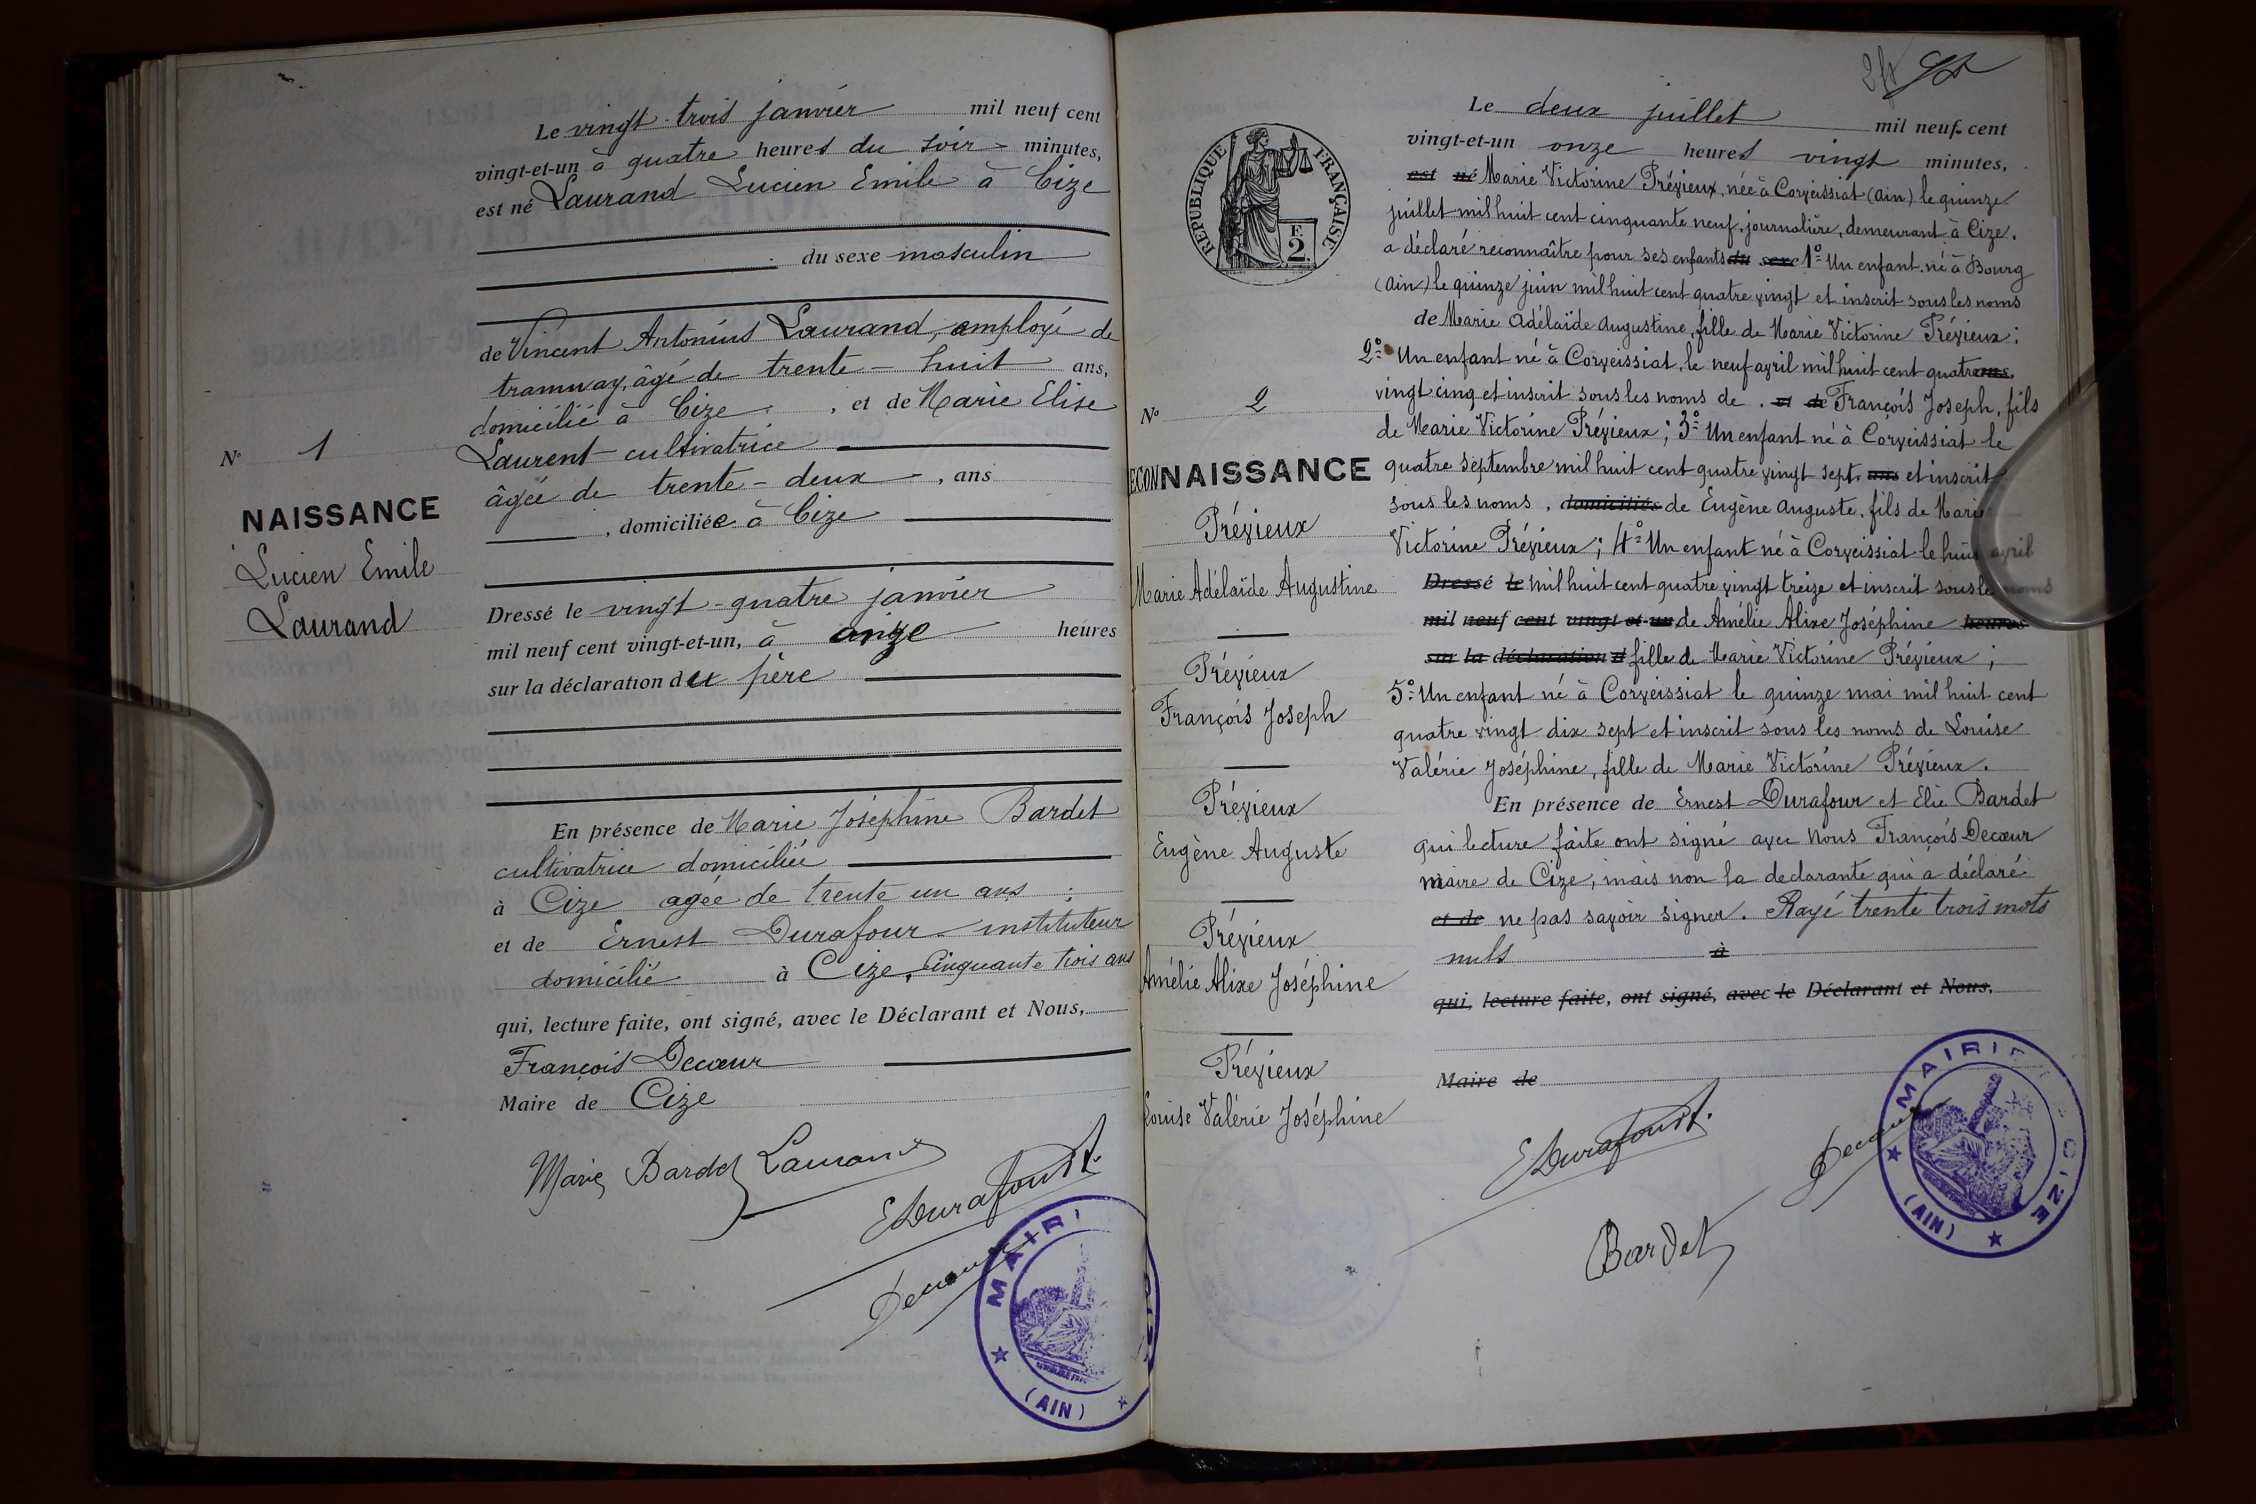 Le vingt-trois janvier mil neuf cent
vingt-et-un à quatre heures du soir - minutes,
est né Laurand Lucien Emile à Cize
du sexe masculin
de Vincent Antonius Laurand, employé de
tramway, âgé de trente-huit ans,
domicilié à Cize, et de Marie Elise
Laurent cultivatrice
âgée de trente-deux, ans
, domiciliée à Cize
Dressé le vingt-quatre janvier
mil neuf cent vingt-et-un, à onze heures
sur la déclaration du père
En présence de Marie Joséphine Bardet
cultivatrice domiciliée
à Cize agée de trente un ans
et de Ernest Durafour instituteur
domicilié à Cize, Cinquante trois ans
qui, lecture faite, ont signé, avec le Déclarant et Nous,
François Decœur
Maire de Cize
Marie Bardet Laurand
EDurafour
Decœur
MAIRI
(AIN)
N° 1
NAISSANCE
Lucien Emile
Laurand
Le deux juillet mil neuf cent
vingt-et-un onze heures vingt minutes,
est né Marie Victorine Prévieux, née à Corveissiat (Ain) le quinze
juillet mil huit cent cinquante neuf, journalière, demeurant à Cize.
a déclaré reconnaître pour ses enfants du sexe 1° Un enfant né à Bourg
(Ain) le quinze juin mil huit cent quatre vingt et inscrit sous les noms
de Marie Adélaïde Augustine, fille de Marie Victorine Prévieux;
2° Un enfant né à Corveissiat, le neuf avril mil huit cent quatre ans,
vingt cinq et inscrit sous les noms de . et de François Joseph, fils
de Marie Victorine Prévieux; 3° Un enfant né à Corveissiat le
quatre septembre mil huit cent quatre vingt sept ans et inscrit
sous les noms, domiciliés de Eugène Auguste, fils de Marie
Victorine Prévieux; 4° Un enfant né à Corveissiat le huit avril
Dressé le mil huit cent quatre vingt treize et inscrit sous les noms
mil neuf cent vingt-et-un de Amélie Alixe Joséphine heures
sur la déclaration d fille de Marie Victorine Prévieux;
5° Un enfant né à Corveissiat le quinze mai mil huit cent
quatre vingt dix sept et inscrit sous les noms de Louise
Valérie Joséphine, fille de Marie Victorine Prévieux.
En présence de Ernest Durafour et Elie Bardet
qui lecture faite ont signé avec Nous François Decœur
maire de Cize, mais non la declarante qui a déclaré
et de ne pas savoir signer. Rayé trente trois mots
nuls à
qui, lecture faite, ont signé, avec le Déclarant et Nous,
Maire de
EDurafour
Decœur
Bardet
MAIRIE CIZE
(AIN)
RÉPUBLIQUE FRANÇAISE
F.
2.
N° 2
RECONNAISSANCE
Prévieux
Marie Adélaïde Augustine
Prévieux
François Joseph
Prévieux
Eugène Auguste
Prévieux
Amélie Alixe Joséphine
Prévieux
Louise Valérie Joséphine